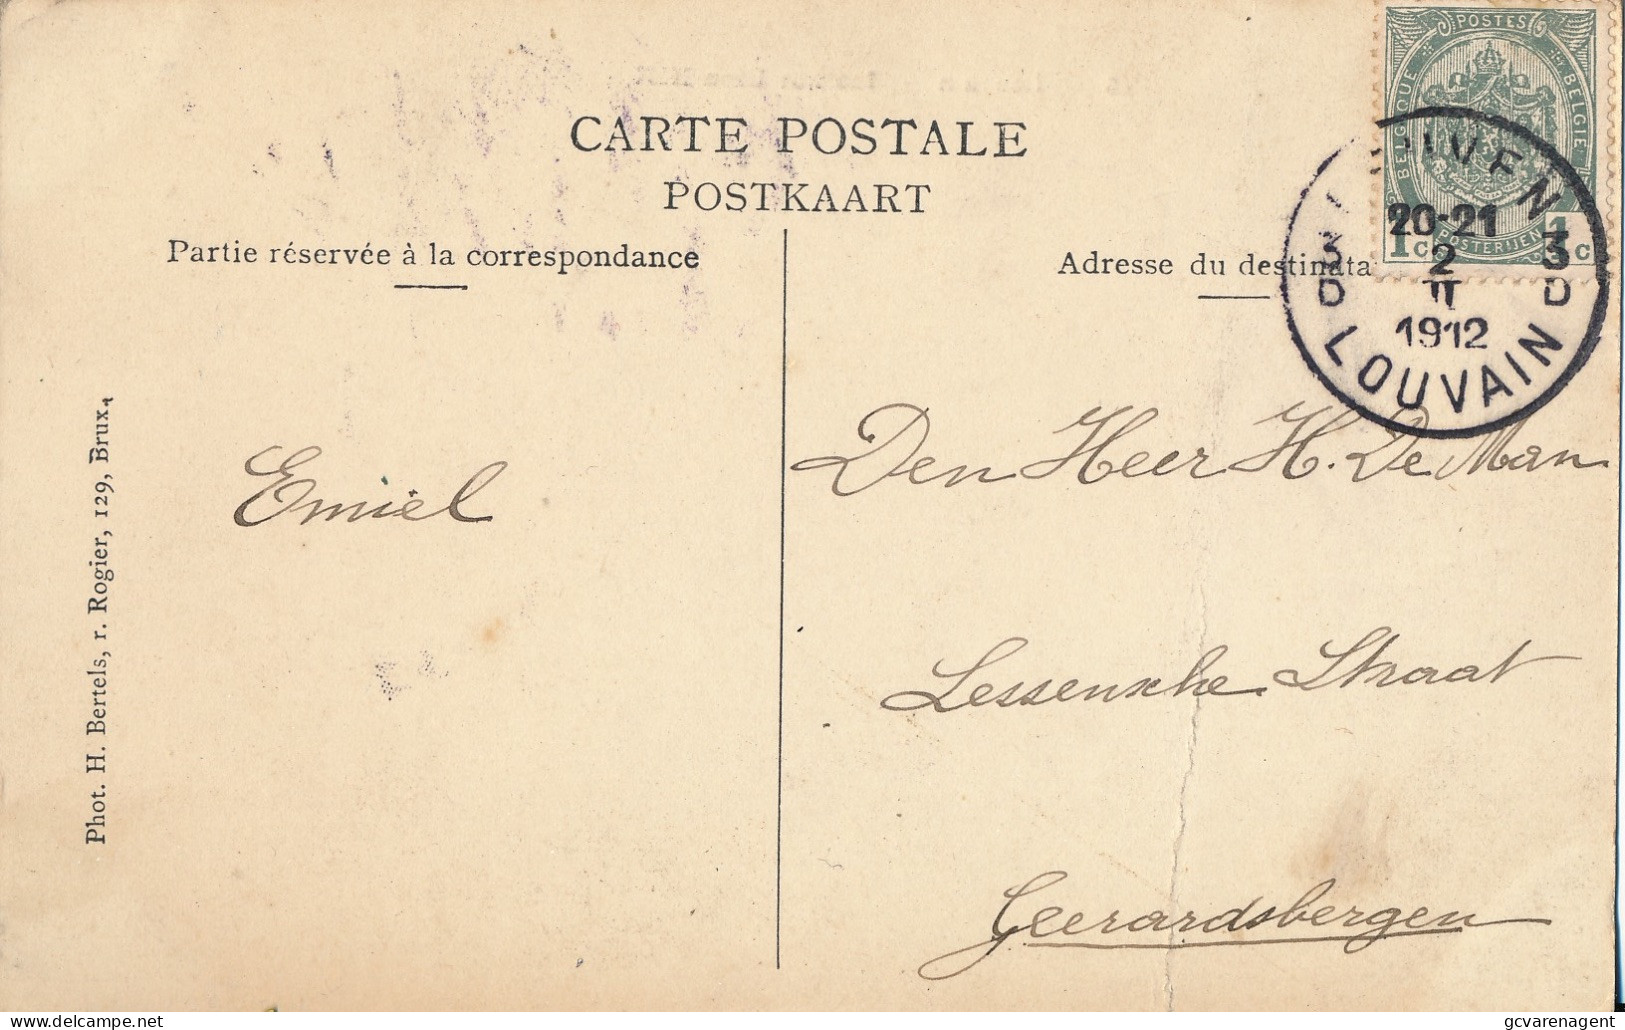 CARTE POSTALE
POSTKAART
Partie réservée à la correspondance
Adresse du destinata
POSTES
BELGIQUE
BELGIE
1c
POSTERIJEN
1c
20-21
3
2
3
D
II
D
1912
LOUVAIN
Emiel
Den Heer H. De Man
Lessensche Straat
Geerardsbergen
Phot. H. Bertels, r. Rogier, 129, Brux.
gcvarenagent